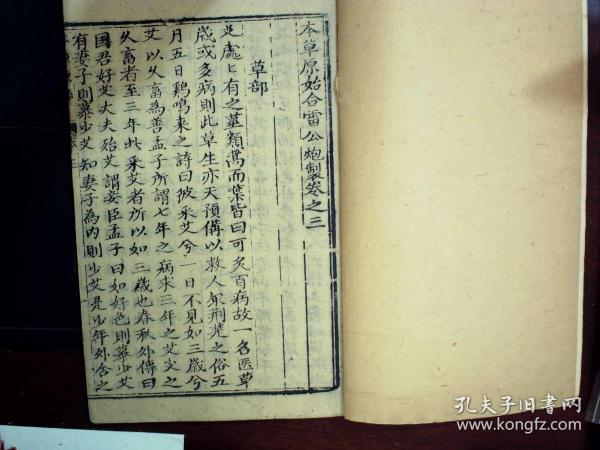 本草原始合雷公炮製卷之三
草部
艾處〻有之莖類蒿而葉皆曰可炙百病故一名医草
歲或多病則此草生亦天預備以救人
荊楚之俗五
月五日鷄鳴来之詩曰彼采艾兮一日不見如三歲兮
艾以久畜為善孟子所謂七年之病求三年之艾艾之
久畜者至三年此采艾者所以如三歲也春秋外傳曰
国君好艾大夫殆艾謂妾臣孟子曰如好色則慕少艾
有妻子則慕少艾知妻子為内則少艾是少年外舍之
孔夫子旧書网
www.kongfz.com